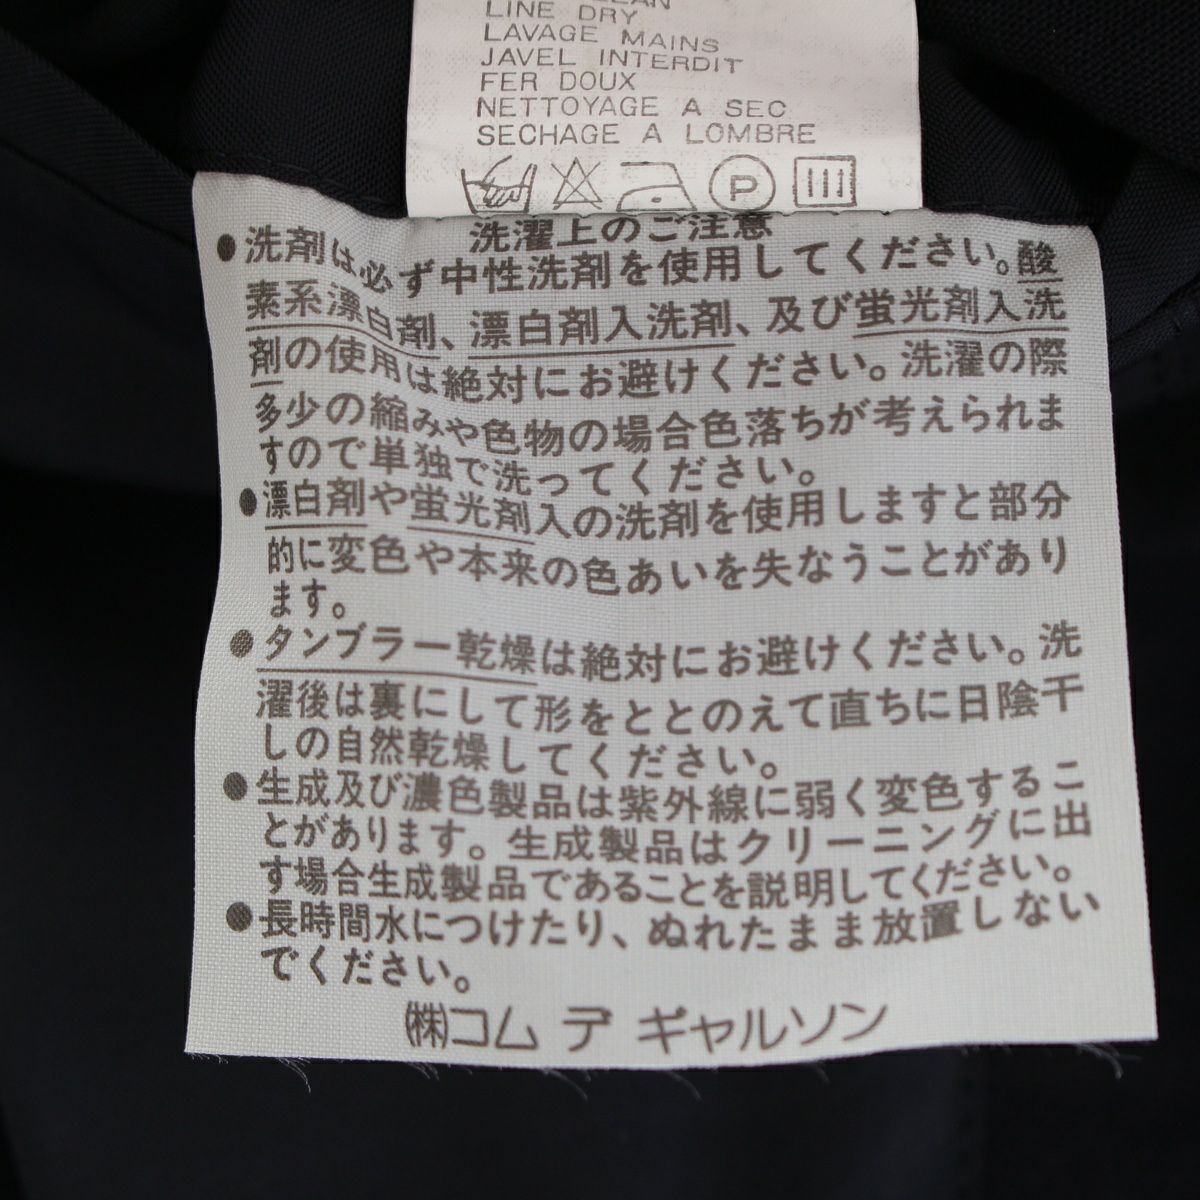 LINE DRY
LAVAGE MAINS
JAVEL INTERDIT
FER DOUX
NETTOYAGE A SEC
SECHAGE A LOMBRE
P
洗濯上のご注意
●洗剤は必ず中性洗剤を使用してください。酸
素系漂白剤、漂白剤入洗剤、及び蛍光剤入洗
剤の使用は絶対にお避けください。洗濯の際
多少の縮みや色物の場合色落ちが考えられま
すので単独で洗ってください。
●漂白剤や蛍光剤入の洗剤を使用しますと部分
的に変色や本来の色あいを失なうことがあり
ます。
●タンブラー乾燥は絶対にお避けください。洗
濯後は裏にして形をととのえて直ちに日陰干
しの自然乾燥してください。
●生成及び濃色製品は紫外線に弱く変色するこ
とがあります。生成製品はクリーニングに出
す場合生成製品であることを説明してください。
●長時間水につけたり、ぬれたまま放置しない
でください。
㈱コム デ ギャルソン